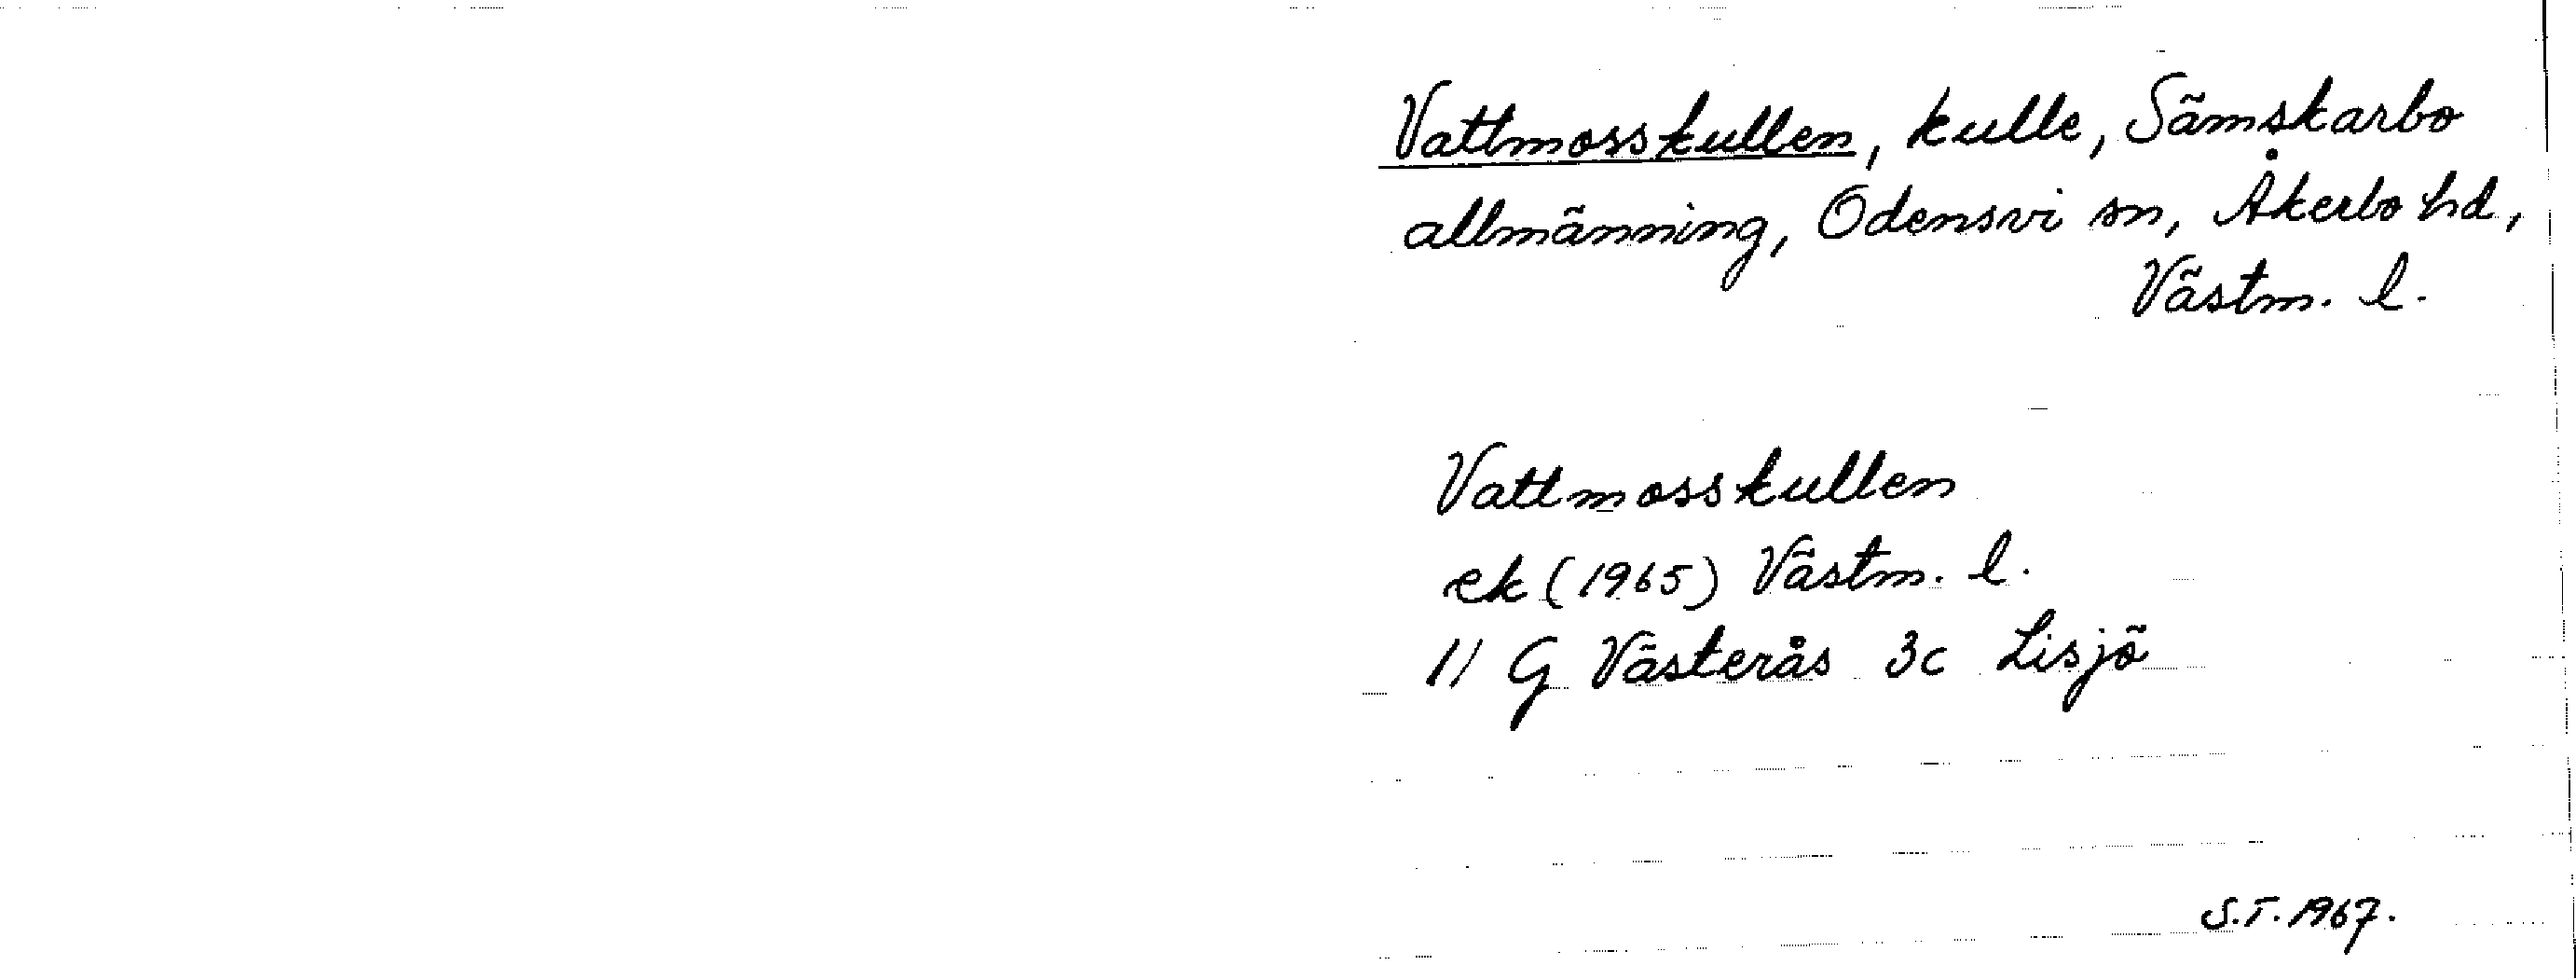 Vattmosskullen, kulle, Sämskarbo
allmänning, Odensvi sn, Åkerbo hd,
Västm. l.
Vattmosskullen
ek (1965) Västm. l.
11 G Västerås 3c Lisjö
S.T. 1967.